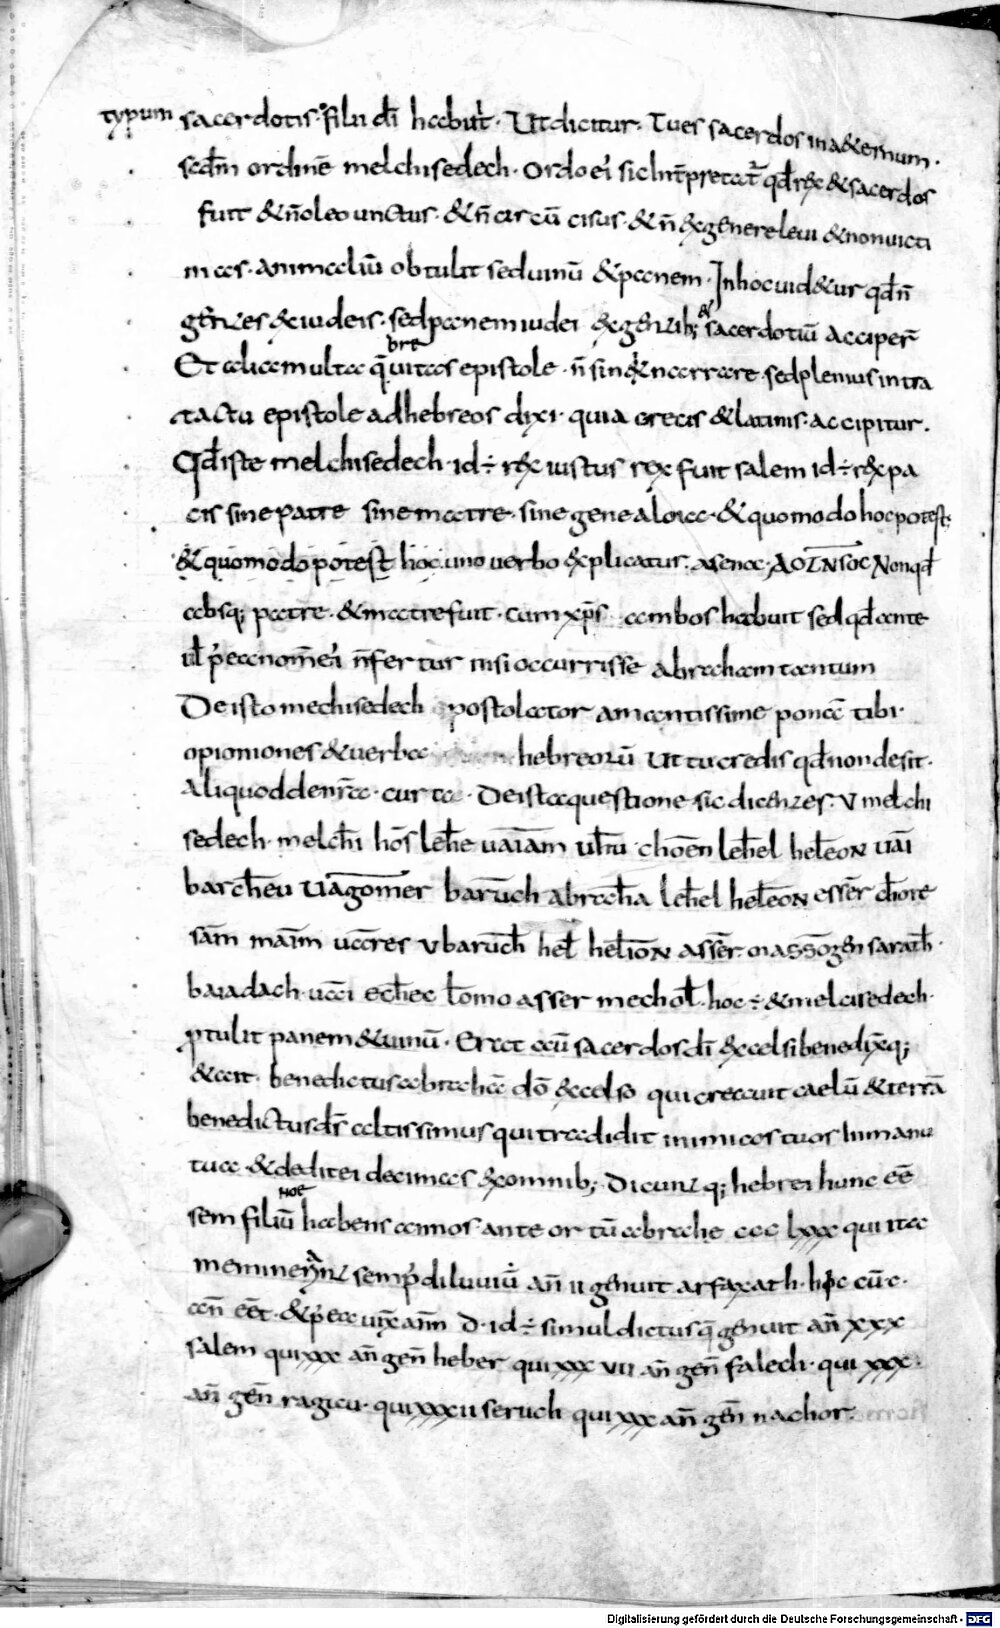 typum sacerdotis filii dī habuit · Ut dicitur · Tu es sacerdos in aeternum ·
scdm ordinē melchisedech · Ordo ei sic intpretat qd rex & sacerdos
fuit & n̄ oleo unctus · & n̄ circū cisus · & n̄ ex genere leui & non uicti
mas · animaliū obtulit sed uinū & panem · In hoc uidetur qd n̄
gentes ex iudeis · sed panem iudei ex gentib; sacerdotiū acciper̄
Et alia multa q̄ breuitas epistole · n̄ sinit narrare · sed plenius in tra
tactu epistole ad hebreos dixi · quia grecis & latinis · accipitur ·
Qd iste melchisedech · id ÷ rex iustus rex fuit salem id ÷ rex pa
cis sine patre sine matre · sine genealoia · & quomodo hoc potest;
& quomodo potest hoc uno uerbo explicatur · Non qd
absq; patre · & matre fuit · cum xp̄s ambos habuit sed qd ante
ul p̄ea nomen ei n̄ fertur nisi occurrisse abraham tantum
De isto mechisedech postolator amantissime ponā tibi ·
opioniones & uerba hebreorū Ut tu credis qd non desit ·
Aliquod de nr̄a · curta · De ista questione sic dicentes · V melchi
sedech · melchi hos lehe uaiam uhtu choen lehel heleon uai
barcheu uagomer baruch abracha lehel heleon esser chore
sam maim uares v baruch hel helion asser · massogen sarath ·
baiadach · uai echec lomo asser mechol · hoc ÷ & melcisedech ·
ptulit panem & uinū · Erat eū sacerdos dī excelsi benedixq;
& ait · benedictus abrahā dō excelso qui creauit caelū & terrā
benedictus ds̄ altissimus qui tradidit inimicos tuos in manu
tua · & dedit ei decimas ex omnib; · Dicunt q; hebrei hunc eē
sem filiū noe habens annos ante ortū abrahe ccc lxxx qui ita
sem p̄ diluuiū an̄ ii genuit arfaxath · hic cū c ·
an̄ eēt · & p̄ea uix an̄ d · id ÷ simul dictus q̄ genuit an̄ xxx
salem qui xxx an̄ gen̄ heber qui xxx vii an̄ gen̄ falech · qui xxx ·
an̄ gen̄ ragicu · qui xxxii seruch qui xxx an̄ gen̄ nachor ·
Digitalisierung gefördert durch die Deutsche Forschungsgemeinschaft - DFG